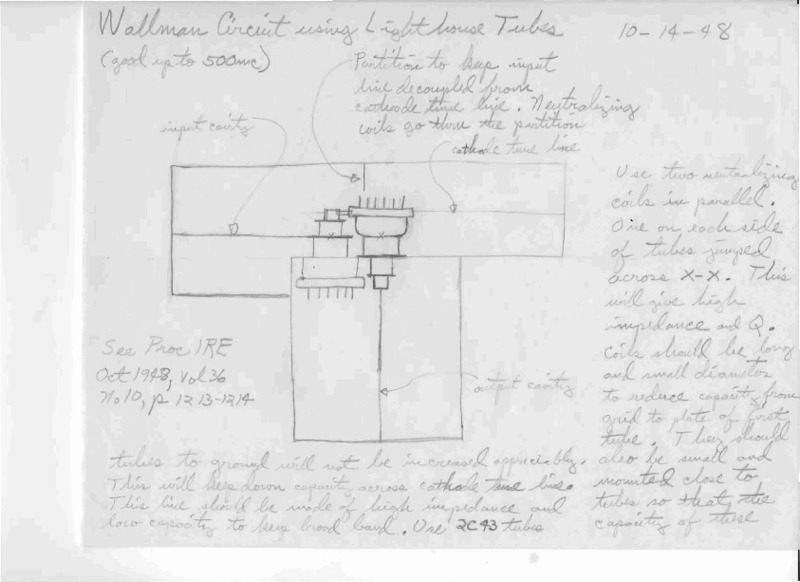 Wallman Circuit using Lighthouse Tubes
10-14-48
(good up to 500mc)
Partition to keep input
line decoupled from
cathode tune line. Neutralizing
coils go thru the partition
input cavity
cathode tune line
Use two neutralizing
coils in parallel.
One on each side
of tubes jumped
across X-X. This
will give high
impedance and Q.
Coils should be long
and small diameter
to reduce capacity from
grid to plate of first
tube. They should
also be small and
mounted close to
tubes so that the
capacity of these
x
x
See Proc IRE
Oct 1948, Vol 36
No 10, p 1213-1214
output cavity
tubes to ground will not be increased appreciably.
This will keep down capacity across cathode tune line.
This line should be made of high impedance and
low capacity to keep broad band. Use 2C43 tubes